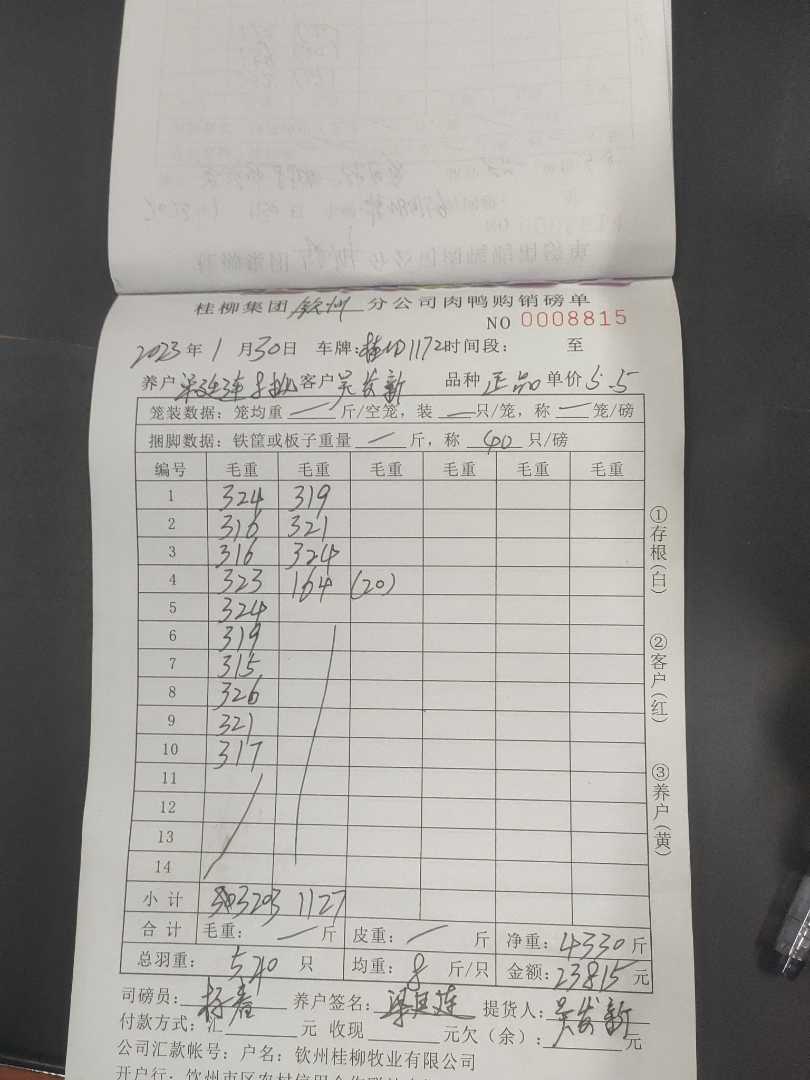 桂柳集团 钦州 分公司肉鸭购销磅单
NO 0008815
2023 年 1 月 30 日 车牌: 1172 时间段: 至
养户 客户 吴发新 品种 正品 单价 5.5
笼装数据: 笼均重 — 斤/空笼, 装 — 只/笼, 称 — 笼/磅
捆脚数据: 铁筐或板子重量 — 斤, 称 40 只/磅
编号 毛重 毛重 毛重 毛重 毛重 毛重
1 324 319
2 316 321
3 316 324
4 323 164 (20)
5 324
6 319
7 315
8 326
9 321
10 317
11
12
13
14
小计 3203 1127
合计 毛重: — 斤 皮重: — 斤 净重: 4330 斤
总羽重: 540 只 均重: 8 斤/只 金额: 23815 元
司磅员: 养户签名: 提货人: 吴发新
付款方式: 汇 元 收现 元欠(余): 元
公司汇款帐号: 户名: 钦州桂柳牧业有限公司
开户行: 钦州市区农村信用合作联社
①存根(白)
②客户(红)
③养户(黄)